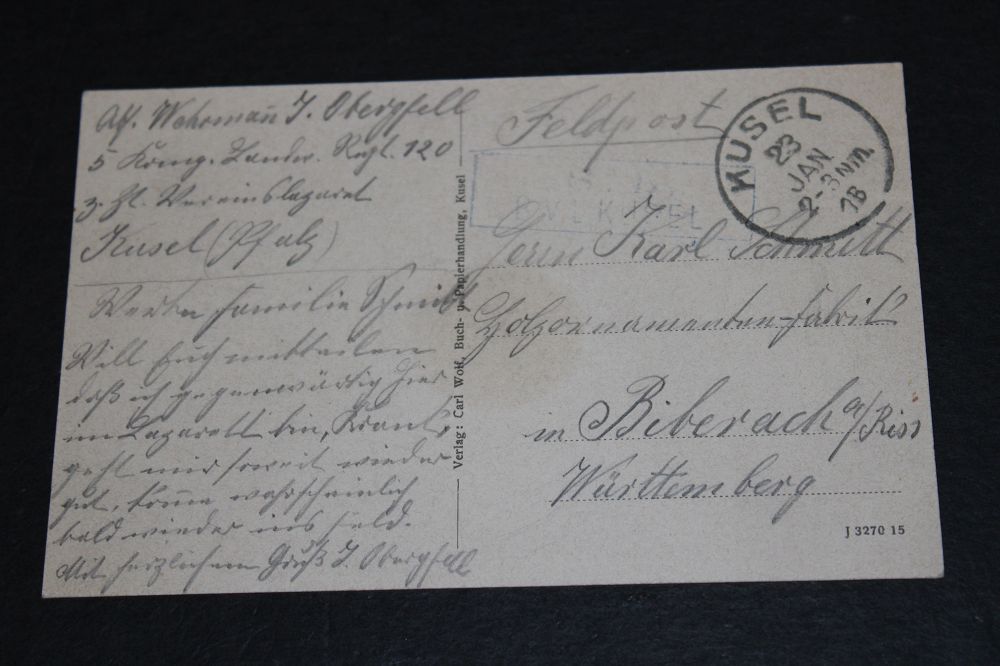 Abs. Wehrmann J. Obergfell
5 Komp. Landw. Regt. 120
z. Zt. Vereinslazaret
Kusel (Pfalz)
Werte Familie Schmitt
Will Euch mitteilen
daß ich gegenwärtig hier
im Lazarett bin, Krank,
geht mir soweit wieder
gut, komme wahrscheinlich
bald wieder ins Feld.
Mit herzlichem Gruß J. Obergfell
Verlag: Carl Wolf, Buch- u. Papierhandlung, Kusel
Feldpost
KUSEL
23
JAN
2-3 Nm.
KUSEL
Herrn Karl Schmitt
Holzornamenten-Fabrik
in Biberach a/Riss
Württemberg
J 3270 15